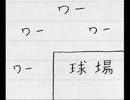 ワー
ワー ワー
ワー 球場